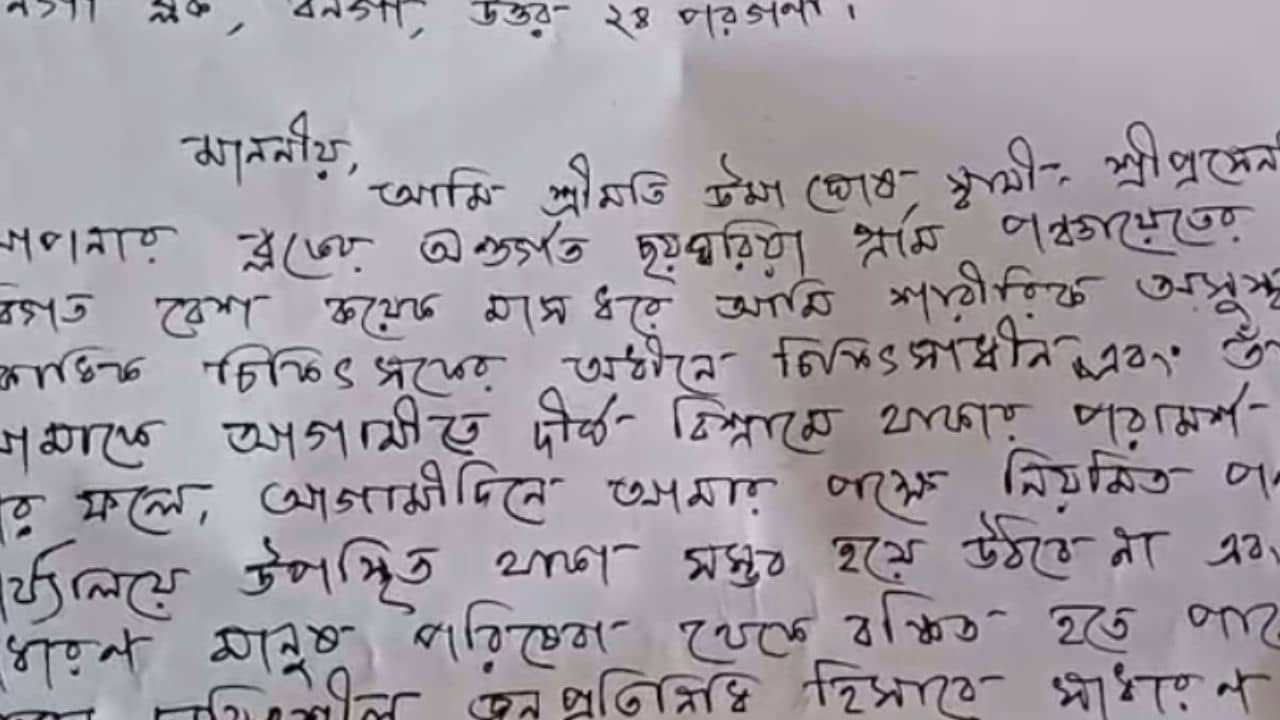 ব্লক, বনগাঁ, উত্তর ২৪ পরগণা।
মাননীয়,
আমি শ্রীমতি উমা ঘোষ, স্বামী- শ্রীপ্রসেন
আপনার ব্লকের অন্তর্গত ছয়ঘরিয়া গ্রাম পঞ্চায়েতের
বিগত বেশ কয়েক মাস ধরে আমি শারীরিক অসুস্থ
একাধিক চিকিৎসকের অধীনে চিকিৎসাধীন এবং তাঁ
আমাকে আগামীতে দীর্ঘ বিশ্রামে থাকার পরামর্শ
যার ফলে, আগামীদিনে আমার পক্ষে নিয়মিত প
কার্য্যালয়ে উপস্থিত থাকা সম্ভব হয়ে উঠবে না এবং
সাধারণ মানুষ পরিষেবা থেকে বঞ্চিত হতে পারে
জনপ্রতিনিধি হিসাবে সাধারণ